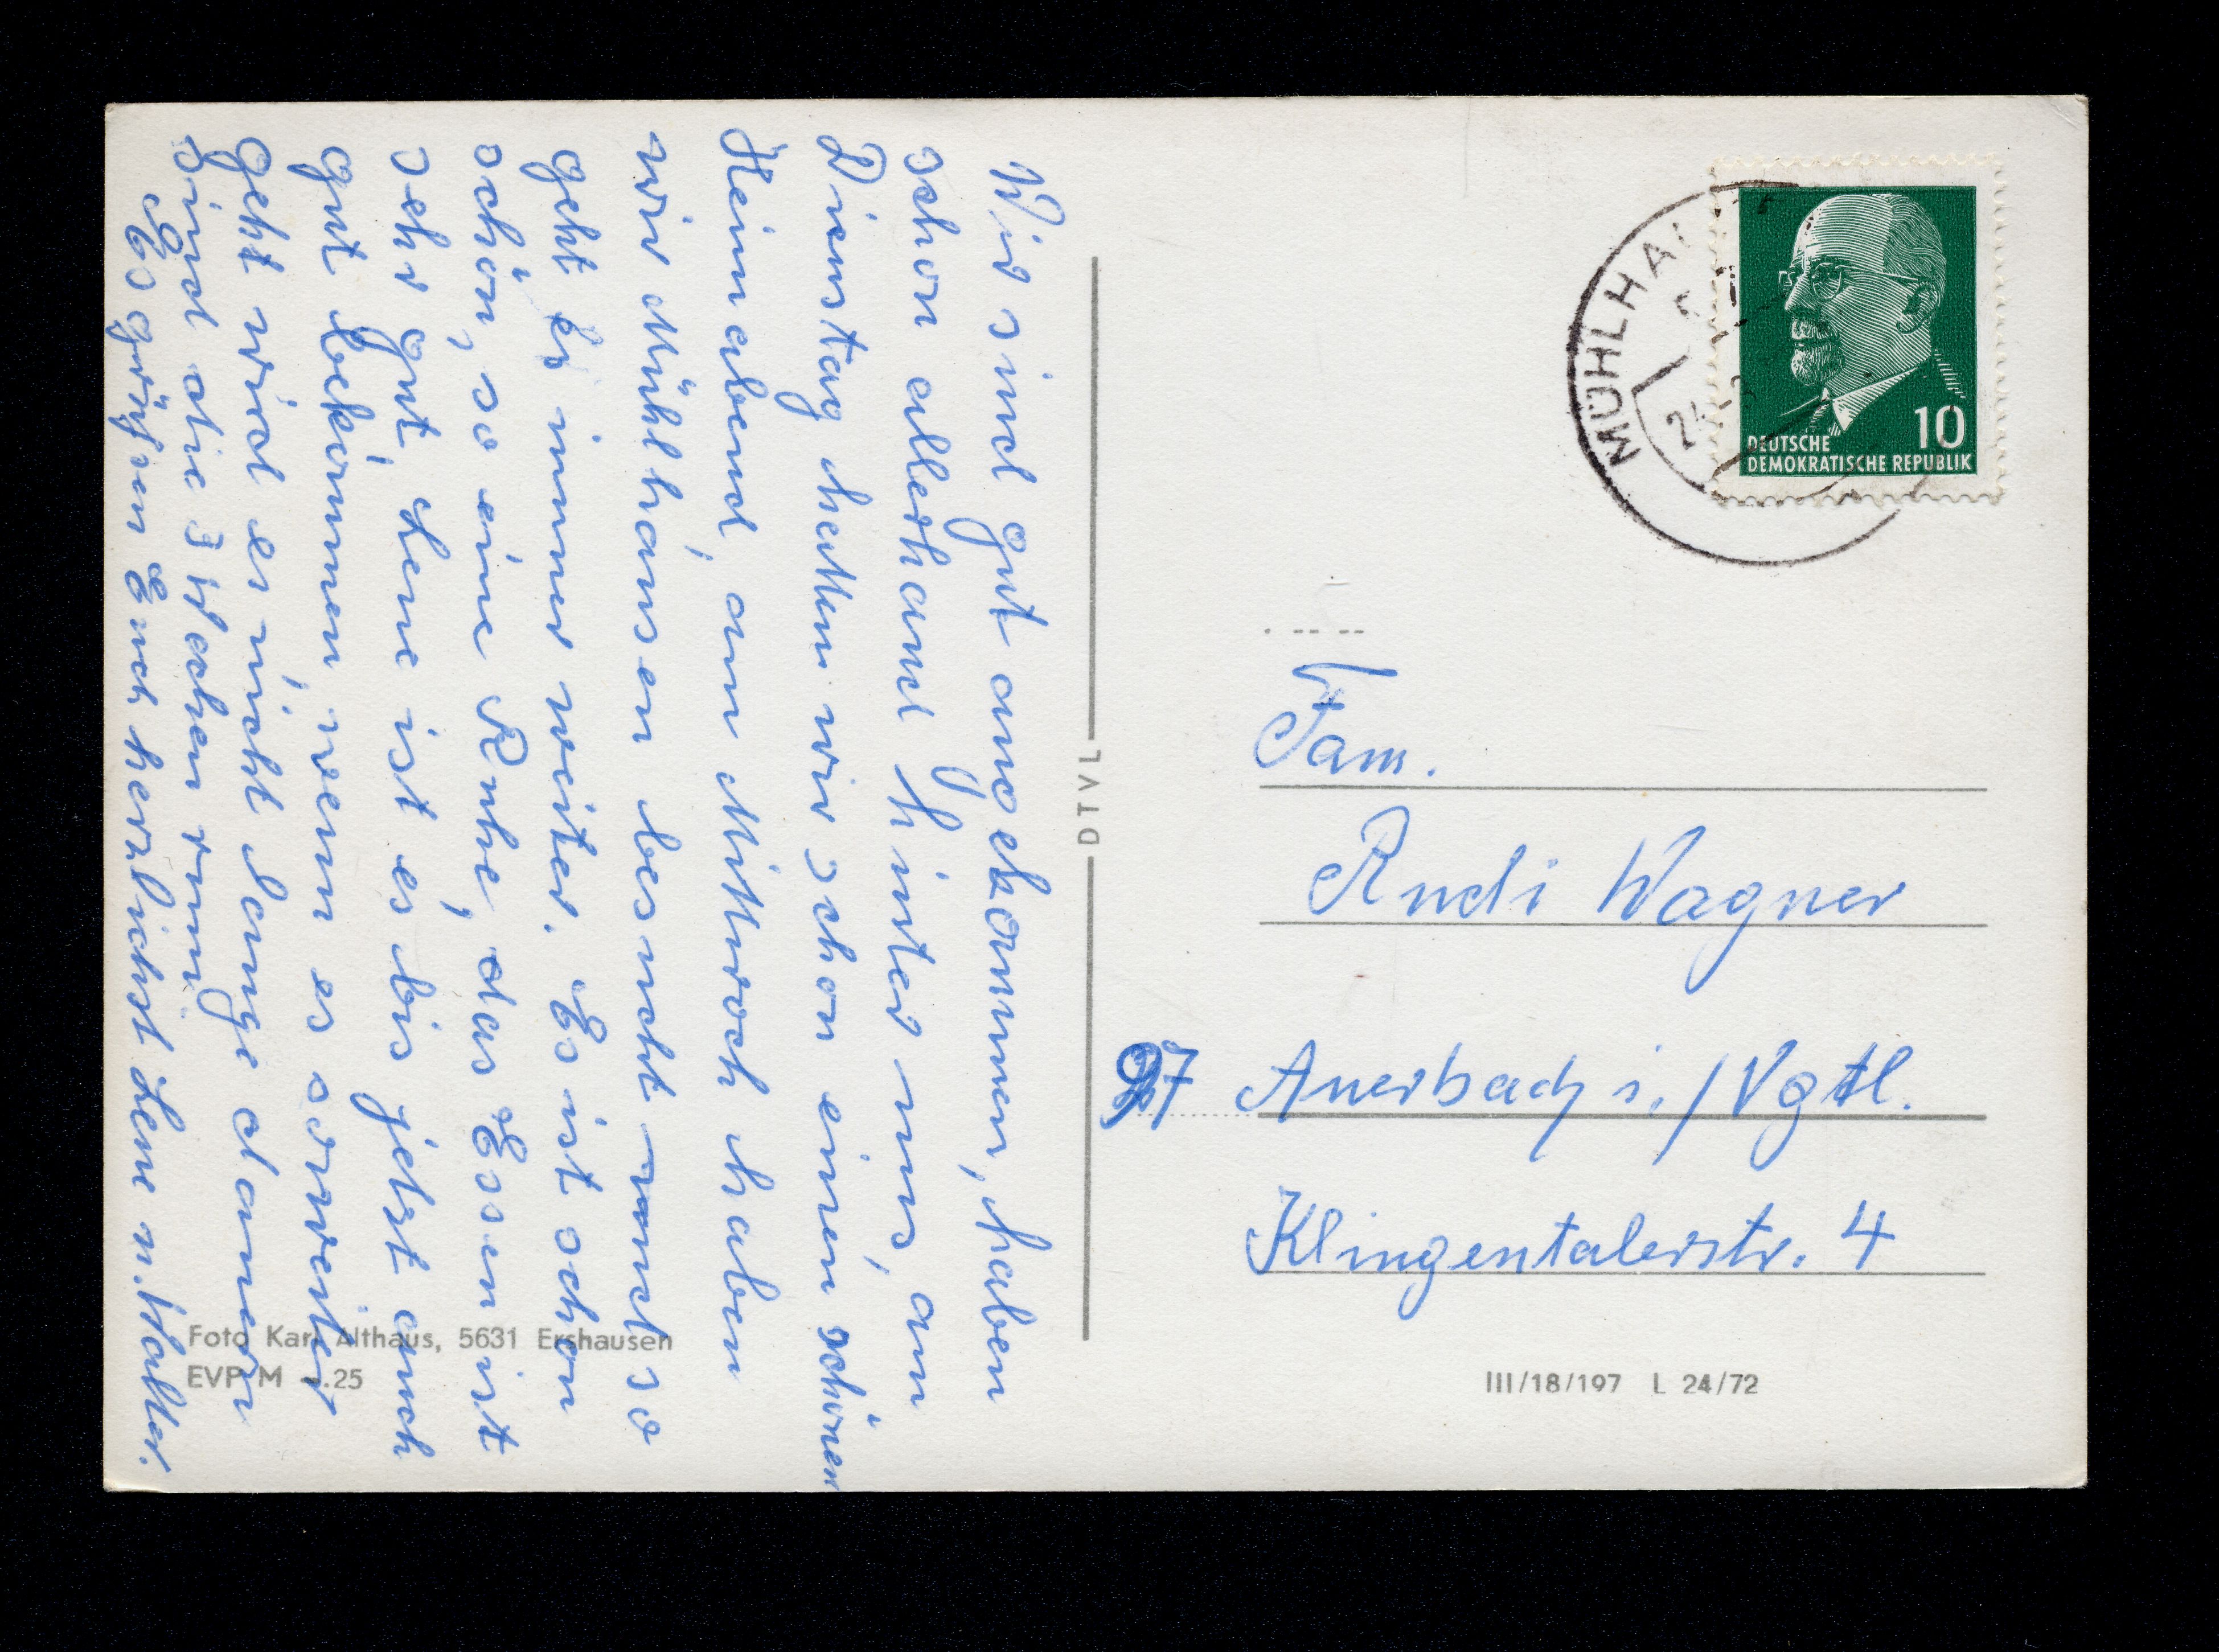 Wir sind gut angekommen, haben
schon allerhand hinter uns, am
Dienstag hatten wir schon einen schönen
Heimabend, am Mittwoch haben
wir Mühlhausen besucht und so
geht es immer weiter. Es ist schon
schön, so eine Ruhe, das Essen ist
sehr gut, Lene ist es bis jetzt auch
gut bekommen, wenn es so weiter
geht wird es nicht lange dauern
sind die 3 Wochen rum.
Es grüßen Euch herzlichst Lene u. Walter.
Foto Karl Althaus, 5631 Ershausen
EVP M -.25
DTVL
MÜHLHA
10
DEUTSCHE
DEMOKRATISCHE REPUBLIK
Fam.
Rudi Wagner
97 Auerbach i./Vgtl.
Klingentalerstr. 4
III/18/197 L 24/72